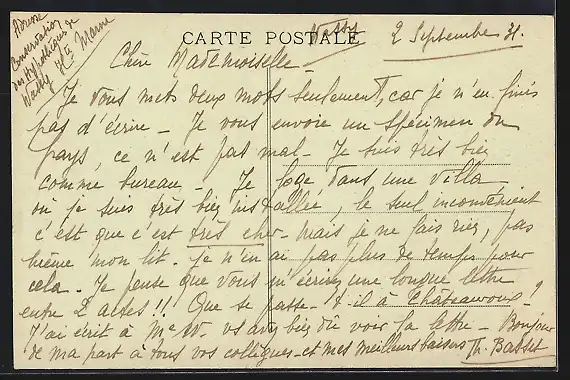 Adresse
Conservation
des Hypothèques de
Wassy Hte Marne
CARTE POSTALE
Wassy 2 Septembre 31.
Chère Mademoiselle
Je vous mets deux mots seulement, car je n'en finis
pas d'écrire - Je vous envoie un spécimen du
pays, ce n'est pas mal - Je suis très bien
comme bureau - Je loge dans une villa
où je suis très bien installée, le seul inconvénient
c'est que c'est très cher - mais je ne fais rien, pas
même mon lit. je n'en ai pas plus de temps pour
cela. Je pense que vous m'écrirez une longue lettre
entre 2 actes!! Que se passe-t-il à Châteauroux?
J'ai écrit à Me W vs avez bien dû voir sa lettre - Bonjour
de ma part à tous vos collègues - et mes meilleurs baisers Th. Basset